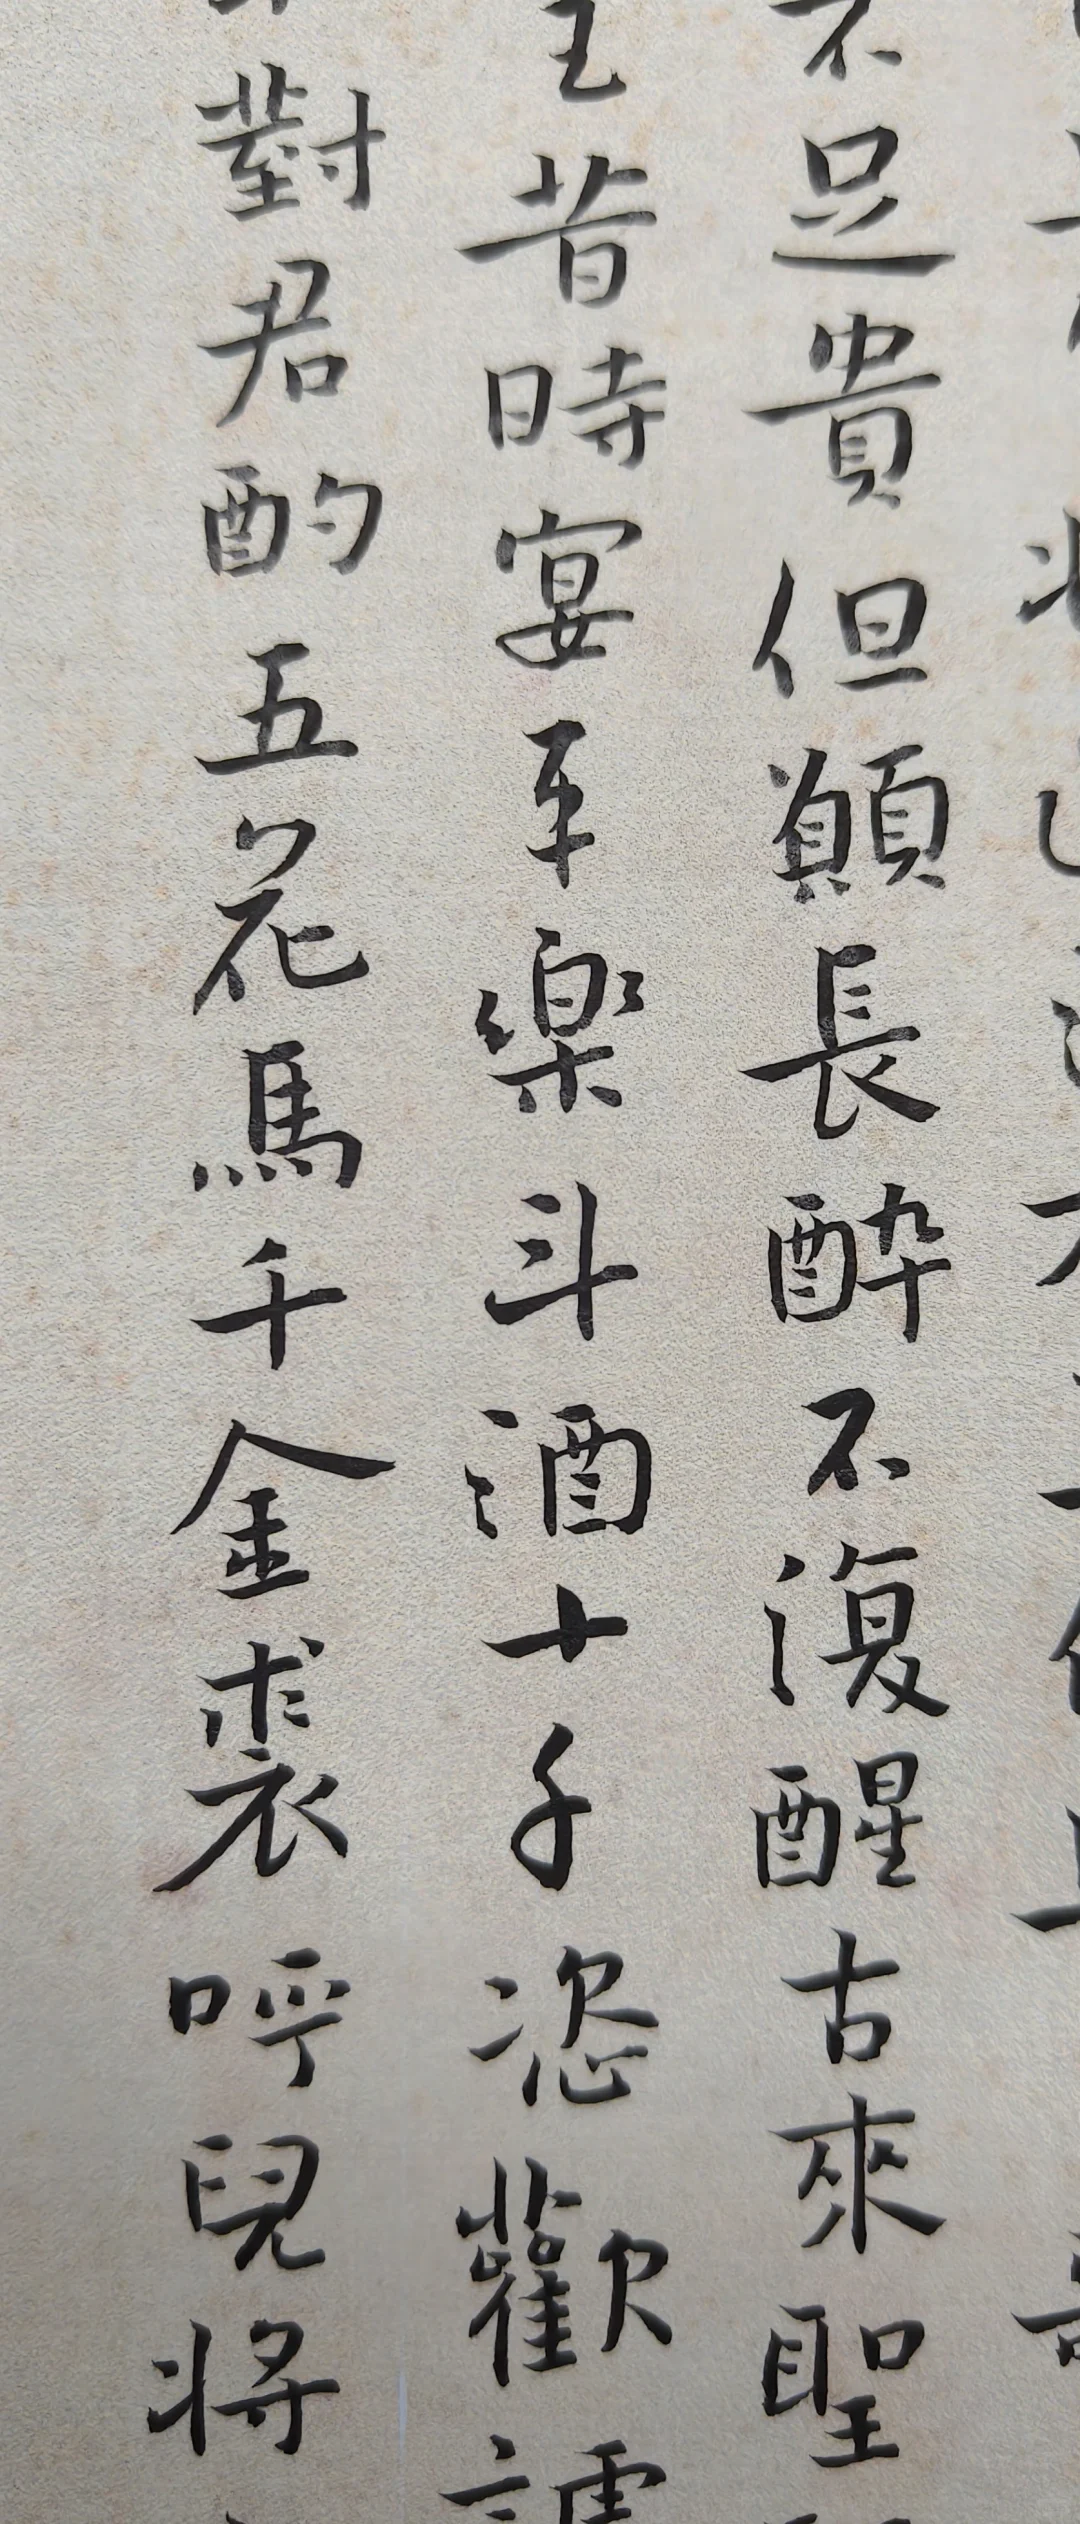 不足貴但願長醉不復醒古來聖
王昔時宴平樂斗酒十千恣歡謔
對君酌五花馬千金裘呼兒將